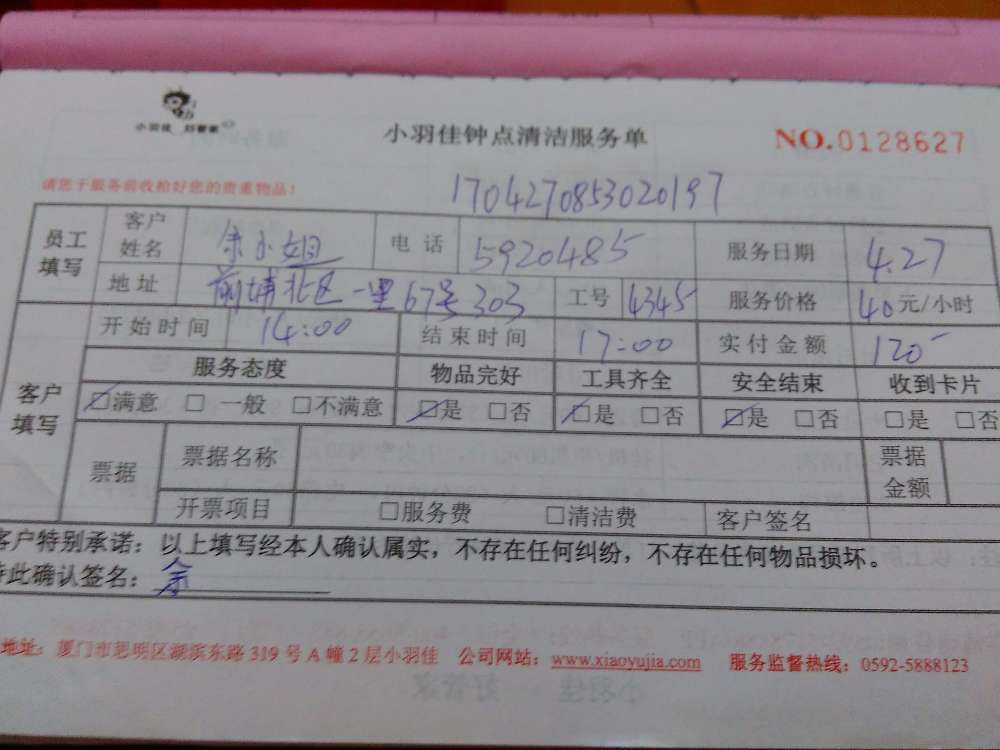 小羽佳 好管家
小羽佳钟点清洁服务单
NO.0128627
请您于服务前收拾好您的贵重物品!
1704270853020197
员工填写 客户姓名 余小姐 电话 5920485 服务日期 4.27
地址 前埔北区一里67号303 工号 4345 服务价格 40元/小时
客户填写 开始时间 14:00 结束时间 17:00 实付金额 120
服务态度 物品完好 工具齐全 安全结束 收到卡片
☑满意 □一般 □不满意 ☑是 □否 ☑是 □否 ☑是 □否 □是 □否
票据 票据名称 票据金额
开票项目 □服务费 □清洁费 客户签名
客户特别承诺：以上填写经本人确认属实，不存在任何纠纷，不存在任何物品损坏。
特此确认签名：余
地址：厦门市思明区湖滨东路 319 号 A 幢 2 层小羽佳 公司网站：www.xiaoyujia.com 服务监督热线：0592-5888123